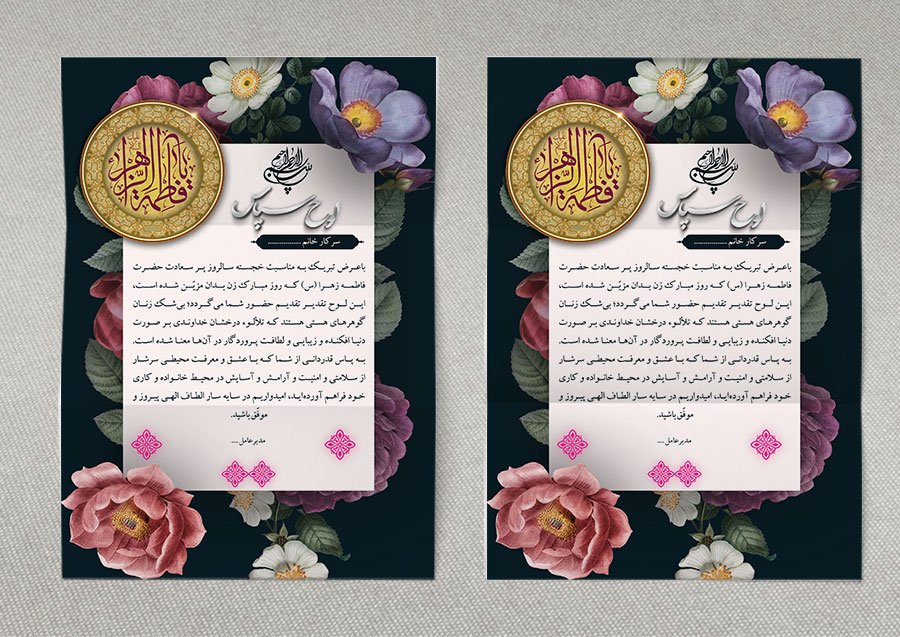 یا فاطمة الزهرا
بسم الله الرحمن الرحیم
لوح سپاس
سرکار خانم ..................
باعرض تبریک به مناسبت خجسته سالروز پر سعادت حضرت
فاطمه زهرا (س) که روز مبارک زن بدان مزیّن شده است،
این لوح تقدیر تقدیم حضور شما می‌گردد؛ بی‌شک زنان
گوهرهای هستی هستند که تلألوء درخشان خداوندی بر صورت
دنیا افکنده و زیبایی و لطافت پروردگار در آن‌ها معنا شده است.
به پاس قدردانی از شما که با عشق و معرفت محیطی سرشار
از سلامتی و امنیت و آرامش و آسایش در محیط خانواده و کاری
خود فراهم آورده‌اید، امیدواریم در سایه سار الطاف الهی پیروز و
موفّق باشید.
مدیرعامل ....
یا فاطمة الزهرا
بسم الله الرحمن الرحیم
لوح سپاس
سرکار خانم ..................
باعرض تبریک به مناسبت خجسته سالروز پر سعادت حضرت
فاطمه زهرا (س) که روز مبارک زن بدان مزیّن شده است،
این لوح تقدیر تقدیم حضور شما می‌گردد؛ بی‌شک زنان
گوهرهای هستی هستند که تلألوء درخشان خداوندی بر صورت
دنیا افکنده و زیبایی و لطافت پروردگار در آن‌ها معنا شده است.
به پاس قدردانی از شما که با عشق و معرفت محیطی سرشار
از سلامتی و امنیت و آرامش و آسایش در محیط خانواده و کاری
خود فراهم آورده‌اید، امیدواریم در سایه سار الطاف الهی پیروز و
موفّق باشید.
مدیرعامل ....